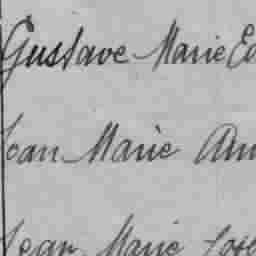 Gustave Marie Ed
Jean Marie Am
Jean Marie Jose